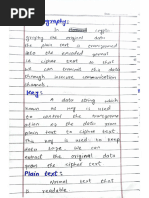 ography:
In crypto-
graphy the original data
the plain text is transformed
into the encoded format
ie cipher text so that
we can transmit the data
through insecure communication
channels.
Key:
A data string which
known as key is used
to control the data from
plain text to cipher text.
The key is used to keep
data safe. We can
extract the original data
from the cipher text.
Plain text:
Normal text that
is readable.